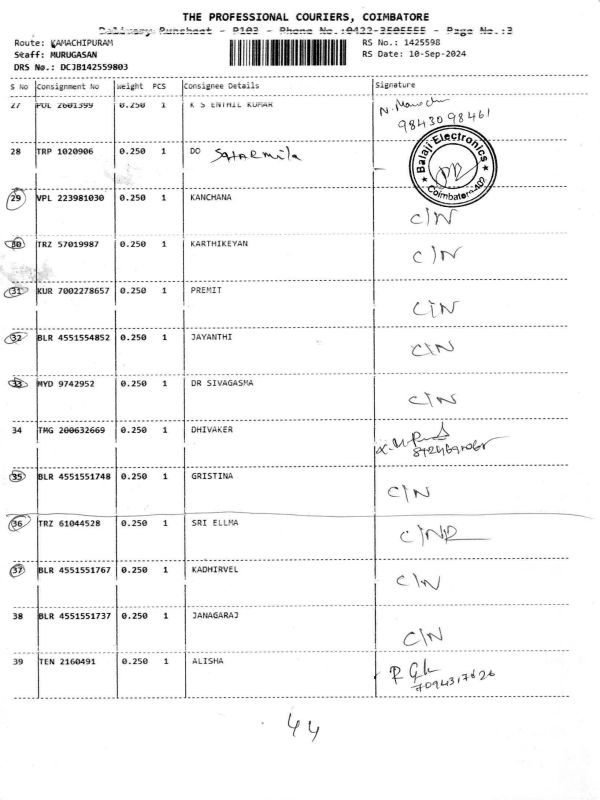 THE PROFESSIONAL COURIERS, COIMBATORE
Delivery Runsheet - P103 - Phone No.:0422-3505555 - Page No.:3
Route: KAMACHIPURAM
RS No.: 1425598
Staff: MURUGASAN
RS Date: 10-Sep-2024
DRS No.: DCJB142559803
S No Consignment No Weight PCS Consignee Details Signature
27 POL 2601399 0.250 1 K S ENTHIL KUMAR
98430 98461
28 TRP 1020906 0.250 1 DO
Balaji Electronics
Coimbatore-402
29 VPL 223981030 0.250 1 KANCHANA C/N
30 TRZ 57019987 0.250 1 KARTHIKEYAN C/N
31 KUR 7002278657 0.250 1 PREMIT C/N
32 BLR 4551554852 0.250 1 JAYANTHI C/N
33 MYD 9742952 0.250 1 DR SIVAGASMA C/N
34 TMG 200632669 0.250 1 DHIVAKER
35 BLR 4551551748 0.250 1 GRISTINA C/N
36 TRZ 61044528 0.250 1 SRI ELLMA
37 BLR 4551551767 0.250 1 KADHIRVEL C/N
38 BLR 4551551737 0.250 1 JANAGARAJ C/N
39 TEN 2160491 0.250 1 ALISHA
44